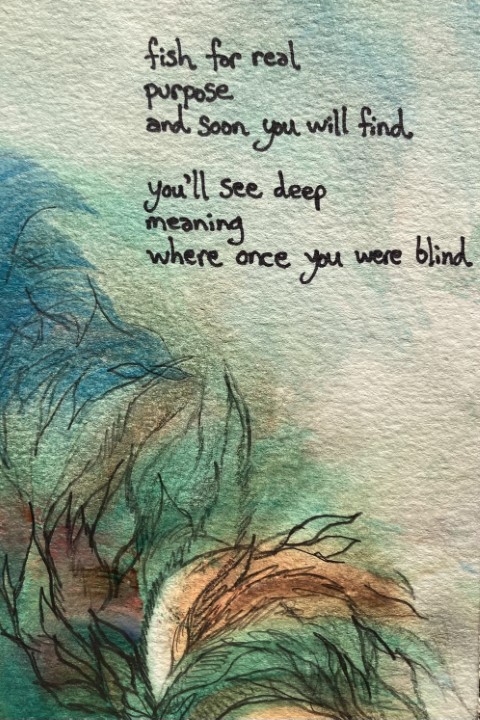 fish for real
purpose
and soon you will find
you'll see deep
meaning
where once you were blind